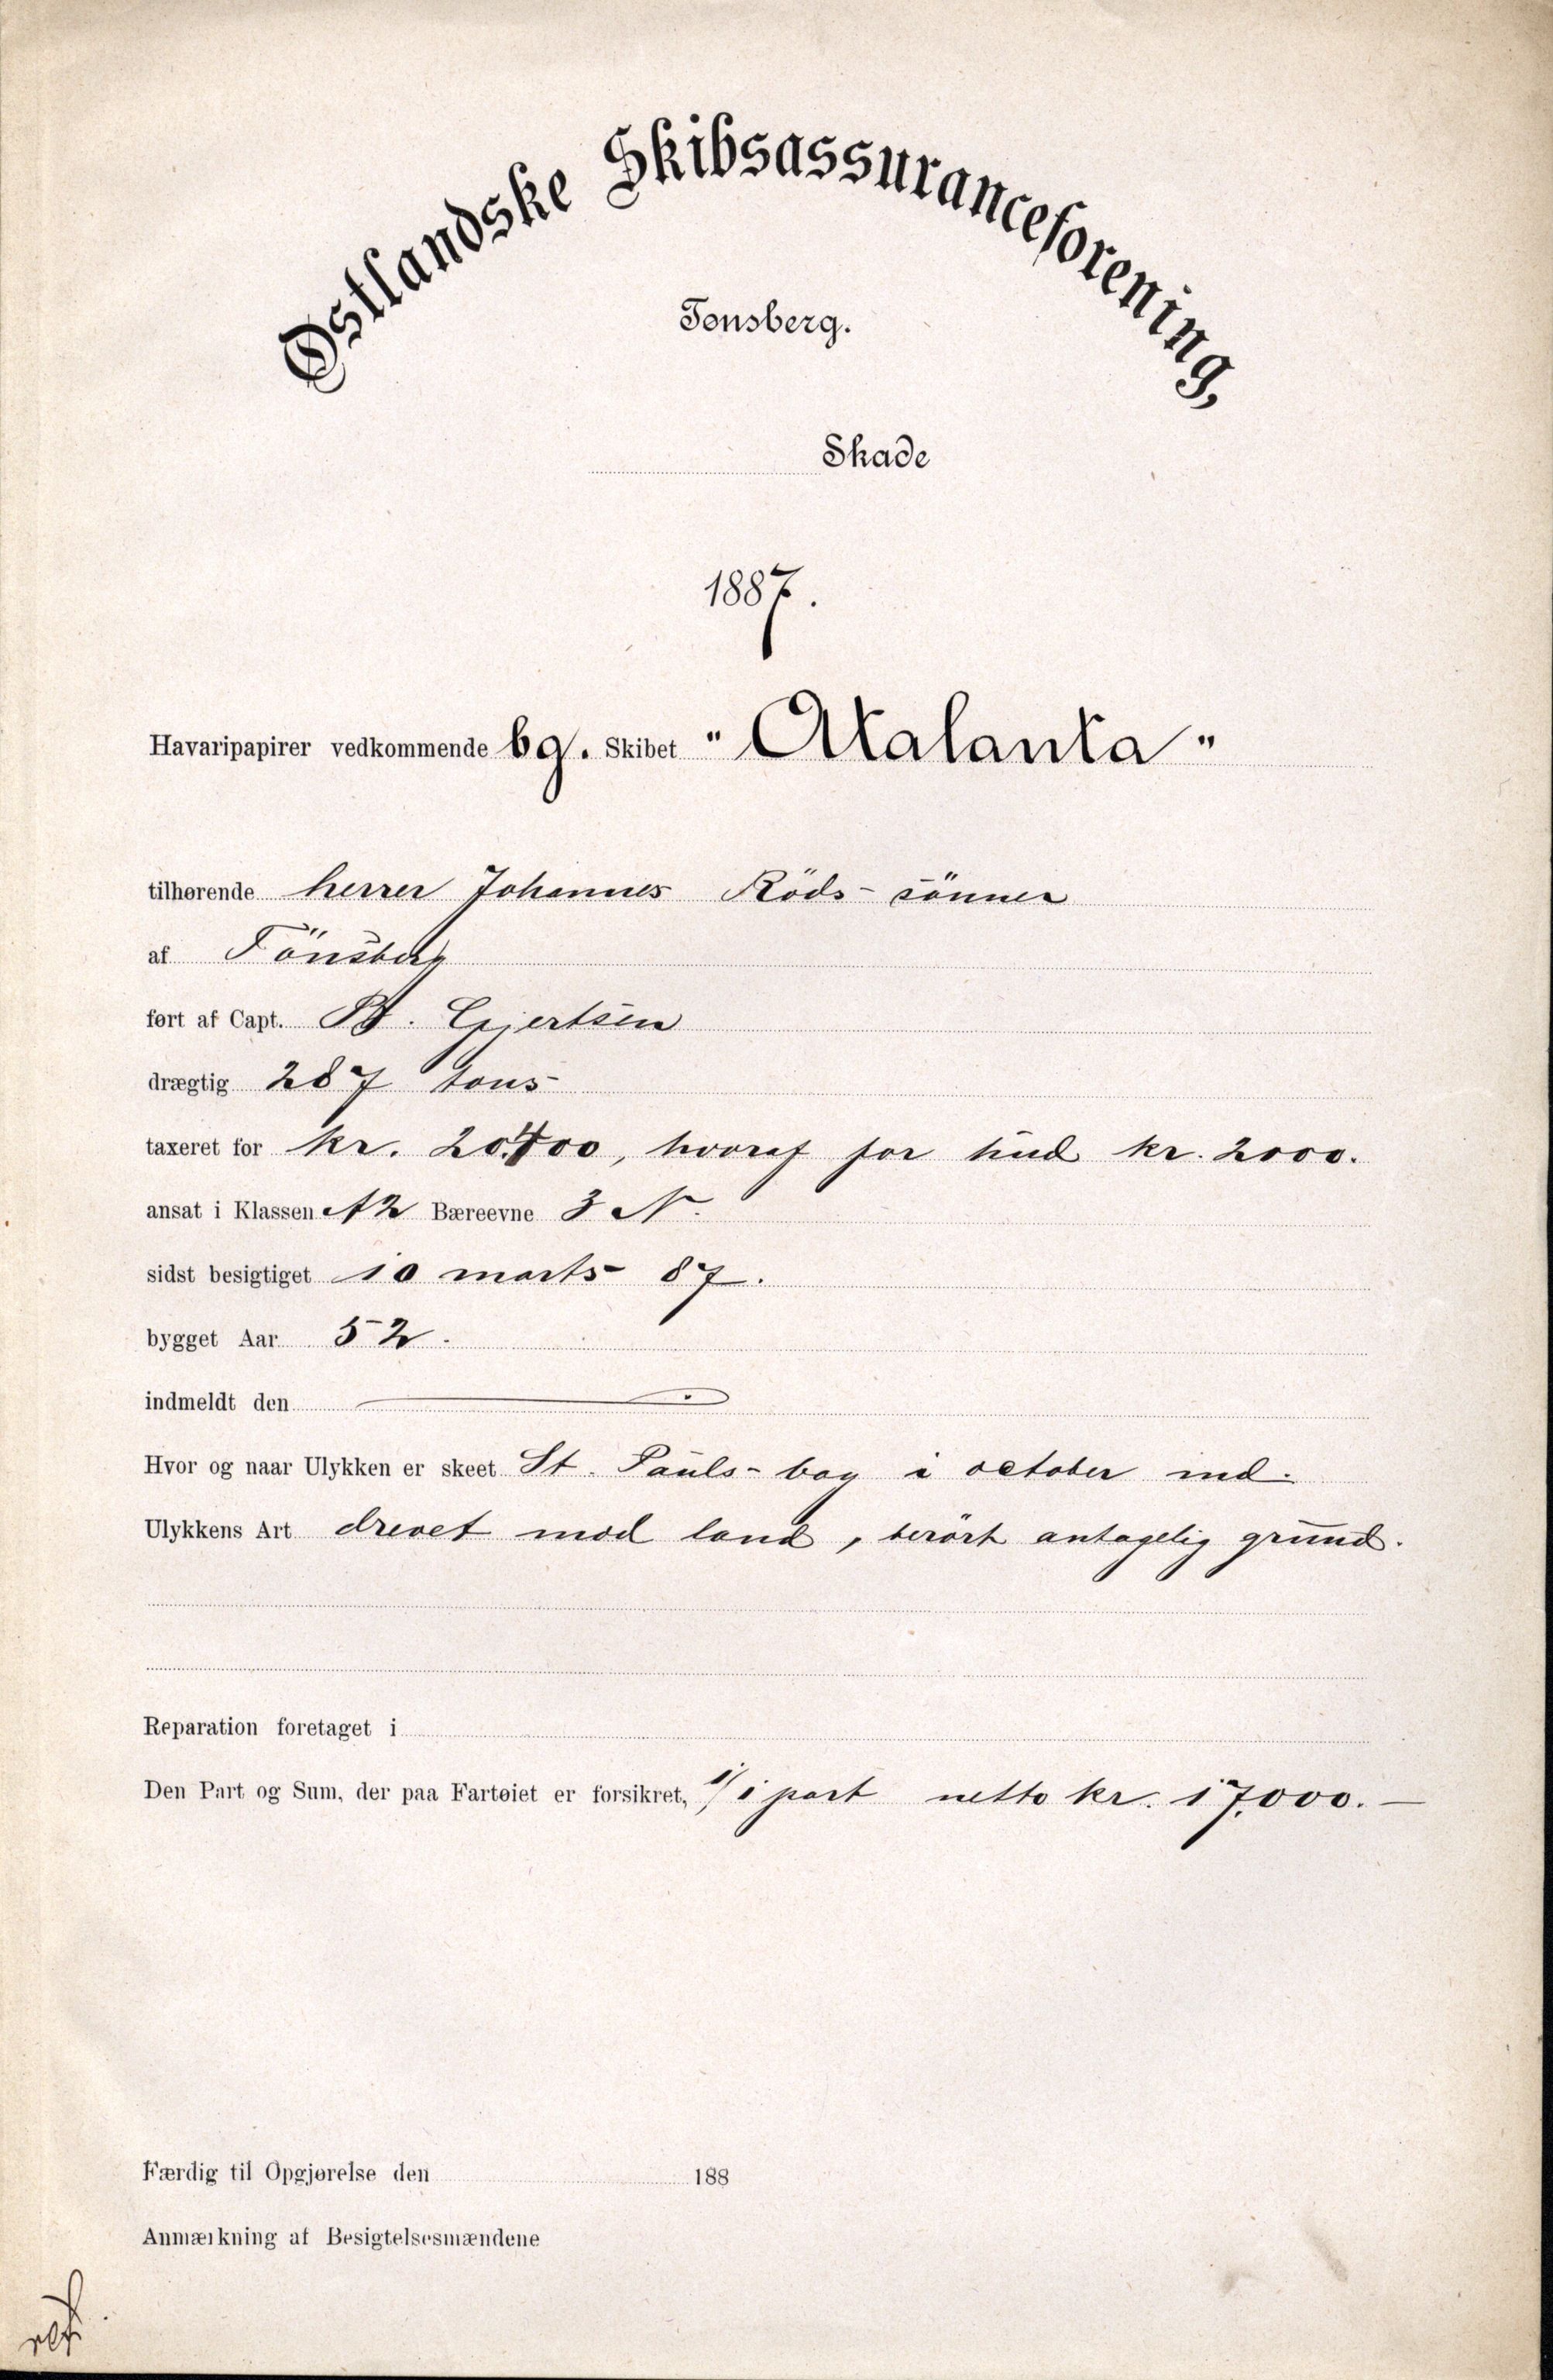 Østlandske Skibsassuranceforening,
Tønsberg.
Skade
1887.
Havaripapirer vedkommende bg. Skibet "Atalanta"
tilhørende herrer Johannes Röds-sönner
af Tönsberg
ført af Capt. B. Gjertsen
drægtig 287 tons
taxeret for kr. 20.400, hvoraf for hud kr. 2000.
ansat i Klassen A2 Bæreevne 3 N.
sidst besigtiget 10 marts 87.
bygget Aar 52.
indmeldt den
Hvor og naar Ulykken er skeet St. Pauls-bay i october md.
Ulykkens Art drevet mod land, berört antagelig grund.
Reparation foretaget i
Den Part og Sum, der paa Fartøiet er forsikret, 1/1 part netto kr. 17.000.—
Færdig til Opgjørelse den 188
Anmærkning af Besigtelsesmændene